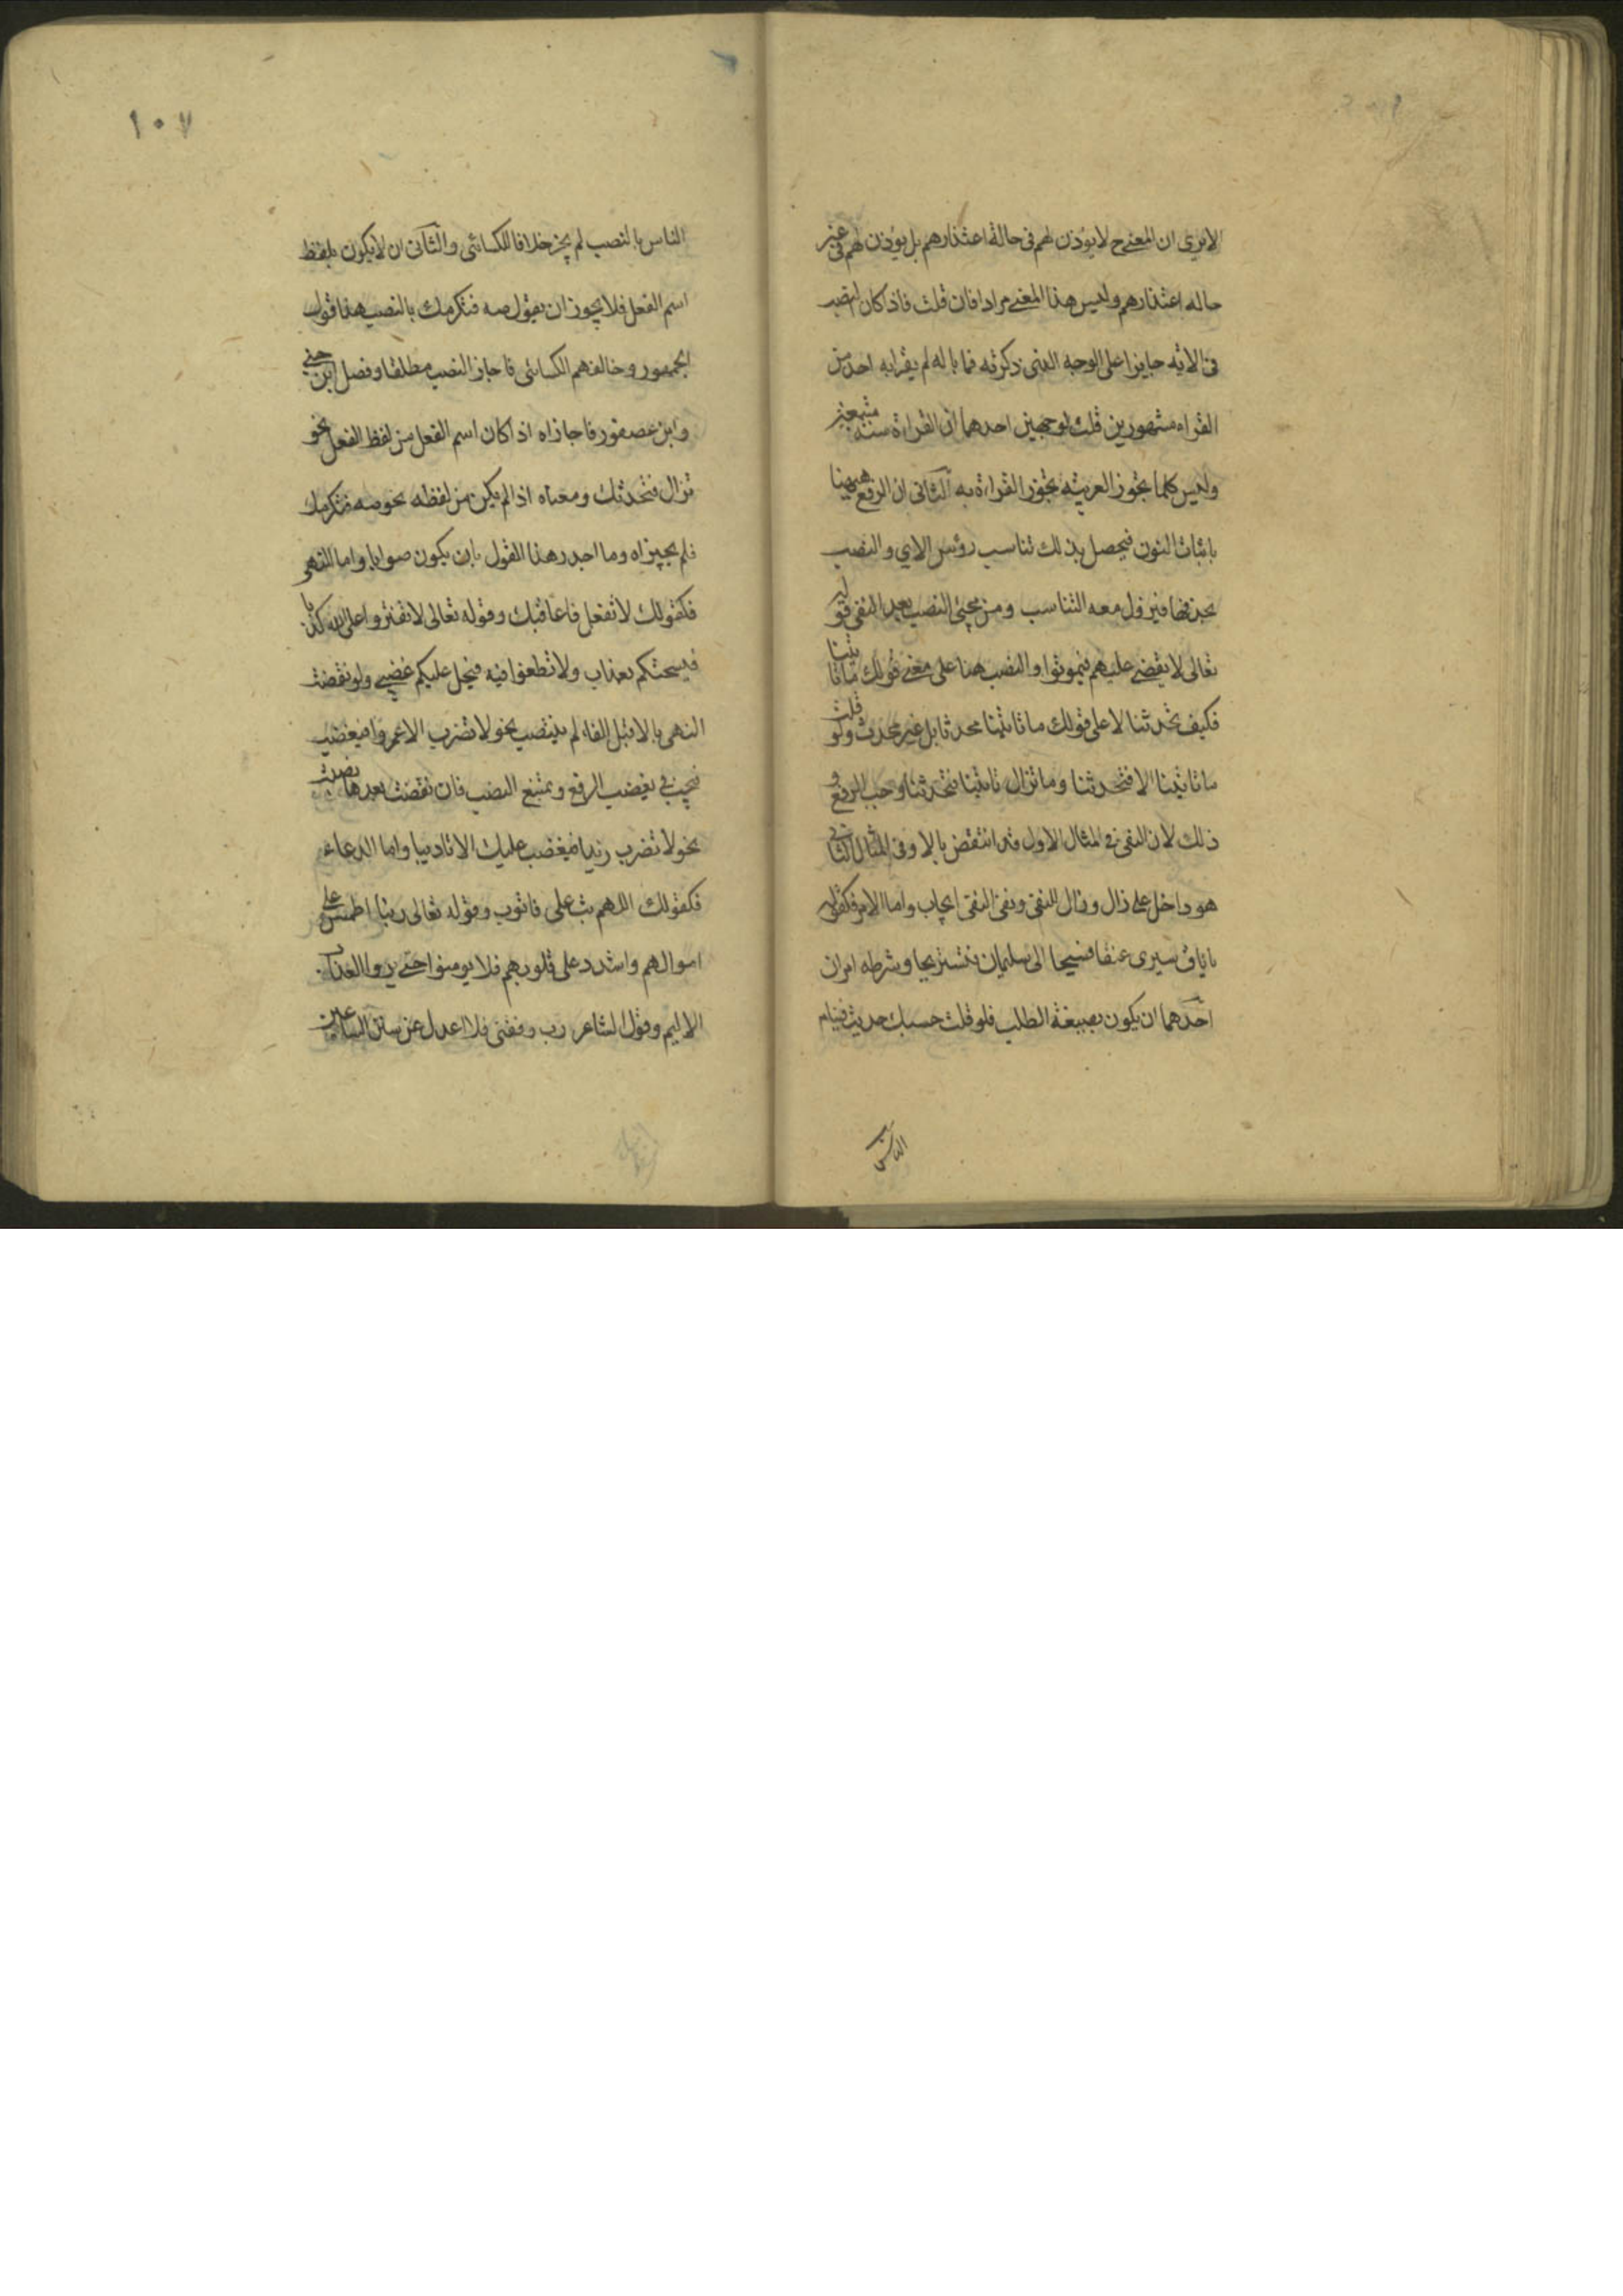 الاتري ان المعني ح لا يؤذن لهم فى حالة اعتذارهم بل يؤذن لهم فى غير
حاله اعتذارهم وليس هذا المعني مرادا فان قلت فاذا كان النصب
فى الايه جايزا على الوجه الذى ذكرته فما باله لم يقرا به احد من
القراء مشهورين قلت لوجهين احدهما ان القراءة سنة متبعة
وليس كلما يجوز العربيه يجوز القراءة به الثانى ان الرفع ههنا
باثبات النون فيحصل بذلك تناسب رؤس الاي والنصب
بحذفها فيزول معه التناسب ومن مجئ النصب بعد النفى قوله
تعالى لا يقضي عليهم فيموتوا والنصب هنا على معني قولك ما تاتينا
فكيف تحدثنا لا على قولك ما تاتينا محدثا بل غير محدث ولو قلت
ما تاتينا الا فتحدثنا وما تزال تاتينا فتحدثنا وجب الرفع و
ذلك لان النفى فى المثال الاول قد انتقض بالا وفى المثال الثانى
هو داخل على زال وزال للنفى ونفى النفى ايجاب واما الامر فكقوله
يا ناق سيرى عنقا فسيحا الى سليمان فنستريحا وشرطه امران
احدهما ان يكون بصيغة الطلب فلو قلت حسبك حديث فينام
الناس
١٠٧
الناس بالنصب لم يجز خلافا للكسائى والثانى ان لا يكون بلفظ
اسم الفعل فلا يجوز ان يقول صه فنكرمك بالنصب هذا قول
الجمهور وخالفهم الكسائى فاجاز النصب مطلقا وفصل ابن جني
وابن عصفور فاجازاه اذا كان اسم الفعل من لفظ الفعل نحو
نزال فنحدثك ومعناه اذا لم يكن من لفظه نحو صه فنكرمك
فلم يجيزاه وما اجدر هذا القول بان يكون صوابا واما النهى
فكقولك لا تفعل فاعاقبك وقوله تعالى لا تفتروا على الله كذبا
فيسحتكم بعذاب ولا تطغوا فيه فيحل عليكم غضبي ولو نقضت
النهى بالا قبل الفاء لم ينتصب نحو لا تضرب الا عمروا فيغضب
فيجب فى يغضب الرفع ويمتنع النصب فان نقضت بعدها نصبت
نحو لا تضرب زيدا فيغضب عليك الا تاديبا واما الدعاء
فكقولك اللهم تب على فاتوب وقوله تعالى ربنا اطمس على
اموالهم واشدد على قلوبهم فلا يومنوا حتي يروا العذاب
الاليم وقول الشاعر رب وفقنى فلا اعدل عن سنن الساعين